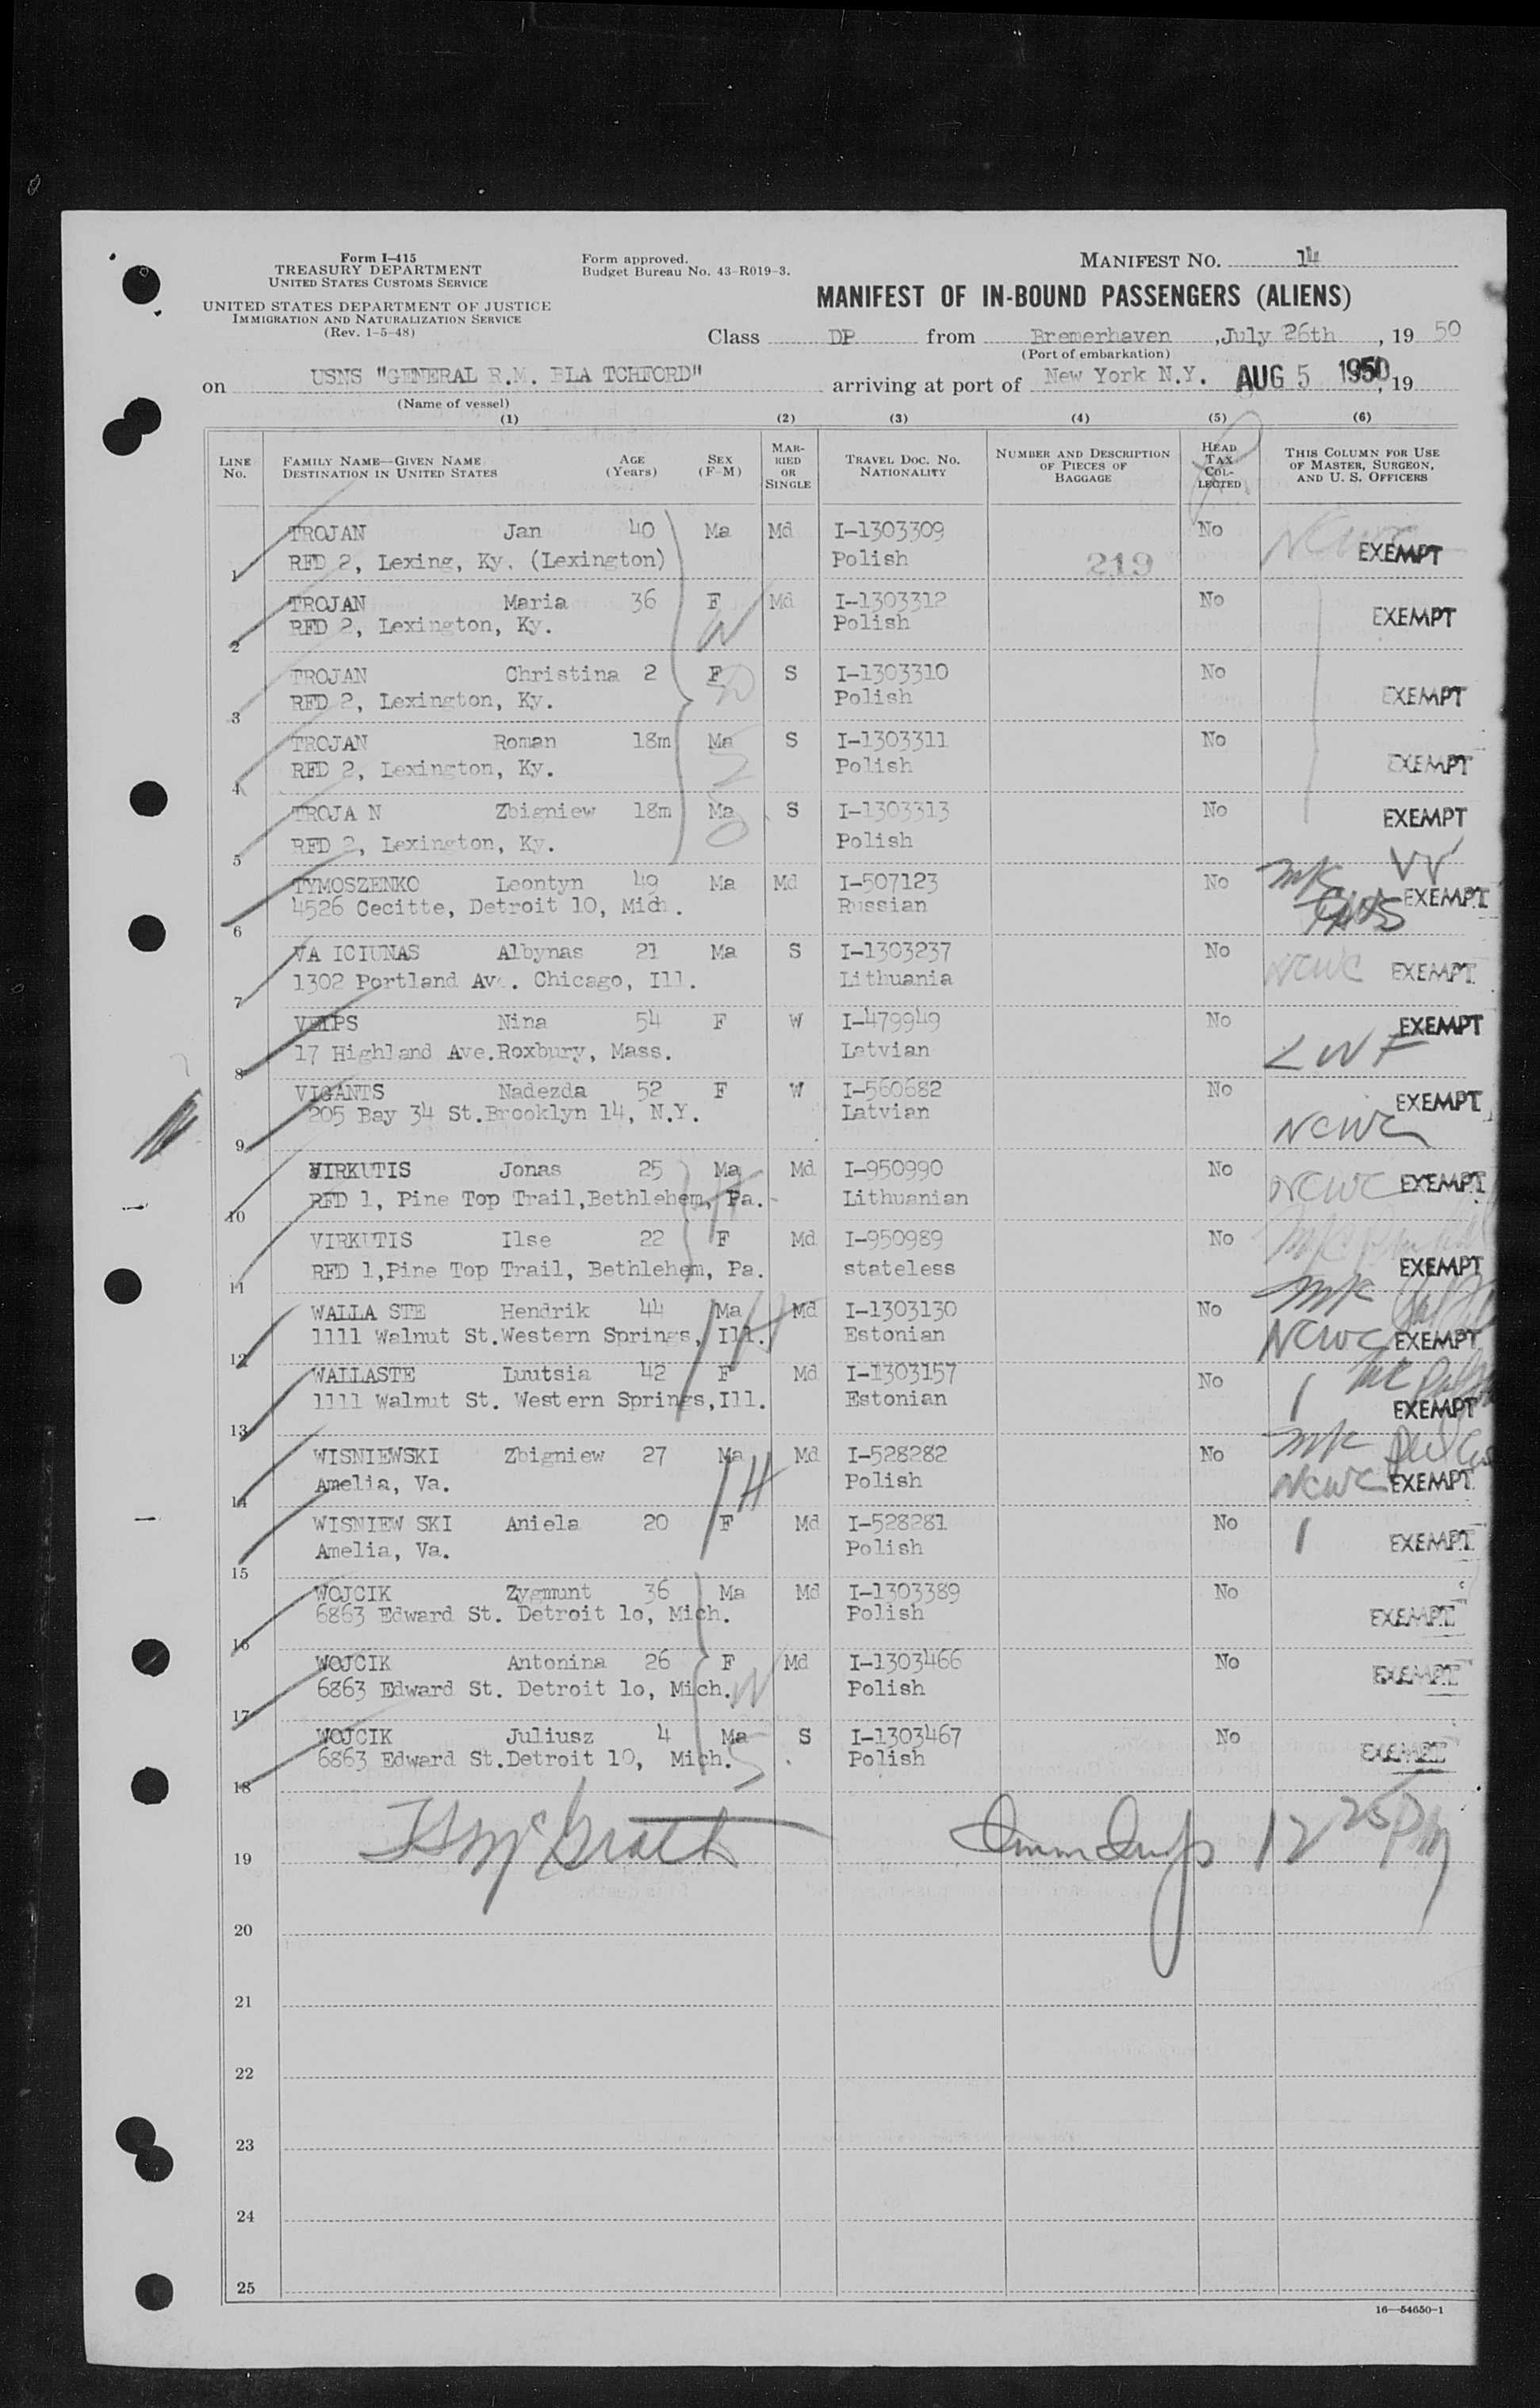 Form I-415
TREASURY DEPARTMENT
UNITED STATES CUSTOMS SERVICE
UNITED STATES DEPARTMENT OF JUSTICE
IMMIGRATION AND NATURALIZATION SERVICE
(Rev. 1-5-48)
Form approved.
Budget Bureau No. 43-R019-3.
MANIFEST NO. 14
MANIFEST OF IN-BOUND PASSENGERS (ALIENS)
Class DP from Bremerhaven, July 26th, 19 50
(Port of embarkation)
on USNS "GENERAL R.M. BLA TCHFORD" arriving at port of New York N.Y. AUG 5 1950, 19
(Name of vessel)
(1) (2) (3) (4) (5) (6)
LINE No. FAMILY NAME—GIVEN NAME DESTINATION IN UNITED STATES AGE (Years) SEX (F-M) MARRIED OR SINGLE TRAVEL DOC. NO. NATIONALITY NUMBER AND DESCRIPTION OF PIECES OF BAGGAGE HEAD TAX COLLECTED THIS COLUMN FOR USE OF MASTER, SURGEON, AND U. S. OFFICERS
TROJAN Jan 40 Ma Md I-1303309 No NCWC
1 RFD 2, Lexing, Ky. (Lexington) Polish 219 EXEMPT
TROJAN Maria 36 F Md I-1303312 No
2 RFD 2, Lexington, Ky. W Polish EXEMPT
TROJAN Christina 2 F S I-1303310 No
3 RFD 2, Lexington, Ky. Polish EXEMPT
TROJAN Roman 18m Ma S I-1303311 No
4 RFD 2, Lexington, Ky. Polish EXEMPT
TROJA N Zbigniew 18m Ma S I-1303313 No
5 RFD 2, Lexington, Ky. Polish EXEMPT
TYMOSZENKO Leontyn 49 Ma Md I-507123 No MK
6 4526 Cecitte, Detroit 10, Mich. Russian EXEMPT
VA ICIUNAS Albynas 21 Ma S I-1303237 No NCWC
7 1302 Portland Ave. Chicago, Ill. Lithuania EXEMPT
VEIPS Nina 54 F W I-479949 No EXEMPT
8 17 Highland Ave.Roxbury, Mass. Latvian LWF
VIGANTS Nadezda 52 F W I-560682 No EXEMPT
9 205 Bay 34 St.Brooklyn 14, N.Y. Latvian NCWC
VIRKUTIS Jonas 25 Ma Md I-950990 No NCWC EXEMPT
10 RFD 1, Pine Top Trail,Bethlehem, Pa. Lithuanian
VIRKUTIS Ilse 22 F Md I-950989 No
11 RFD 1,Pine Top Trail, Bethlehem, Pa. stateless EXEMPT
WALLA STE Hendrik 44 Ma Md I-1303130 No MK
12 1111 Walnut St.Western Springs, Ill. Estonian NCWC EXEMPT
WALLASTE Luutsia 42 F Md I-1303157 No
13 1111 Walnut St. Western Springs,Ill. Estonian EXEMPT
WISNIEWSKI Zbigniew 27 Ma Md I-528282 No MK
14 Amelia, Va. H Polish NCWC EXEMPT
WISNIEW SKI Aniela 20 F Md I-528281 No
15 Amelia, Va. Polish EXEMPT
WOJCIK Zygmunt 36 Ma Md I-1303389 No
16 6863 Edward St. Detroit lo, Mich. Polish EXEMPT
WOJCIK Antonina 26 F Md I-1303466 No
17 6863 Edward St. Detroit lo, Mich. W Polish EXEMPT
WOJCIK Juliusz 4 Ma S I-1303467 No
18 6863 Edward St.Detroit 10, Mich. Polish EXEMPT
19 McGrath Imm Insp 12 25 PM
20
21
22
23
24
25
16—54650-1